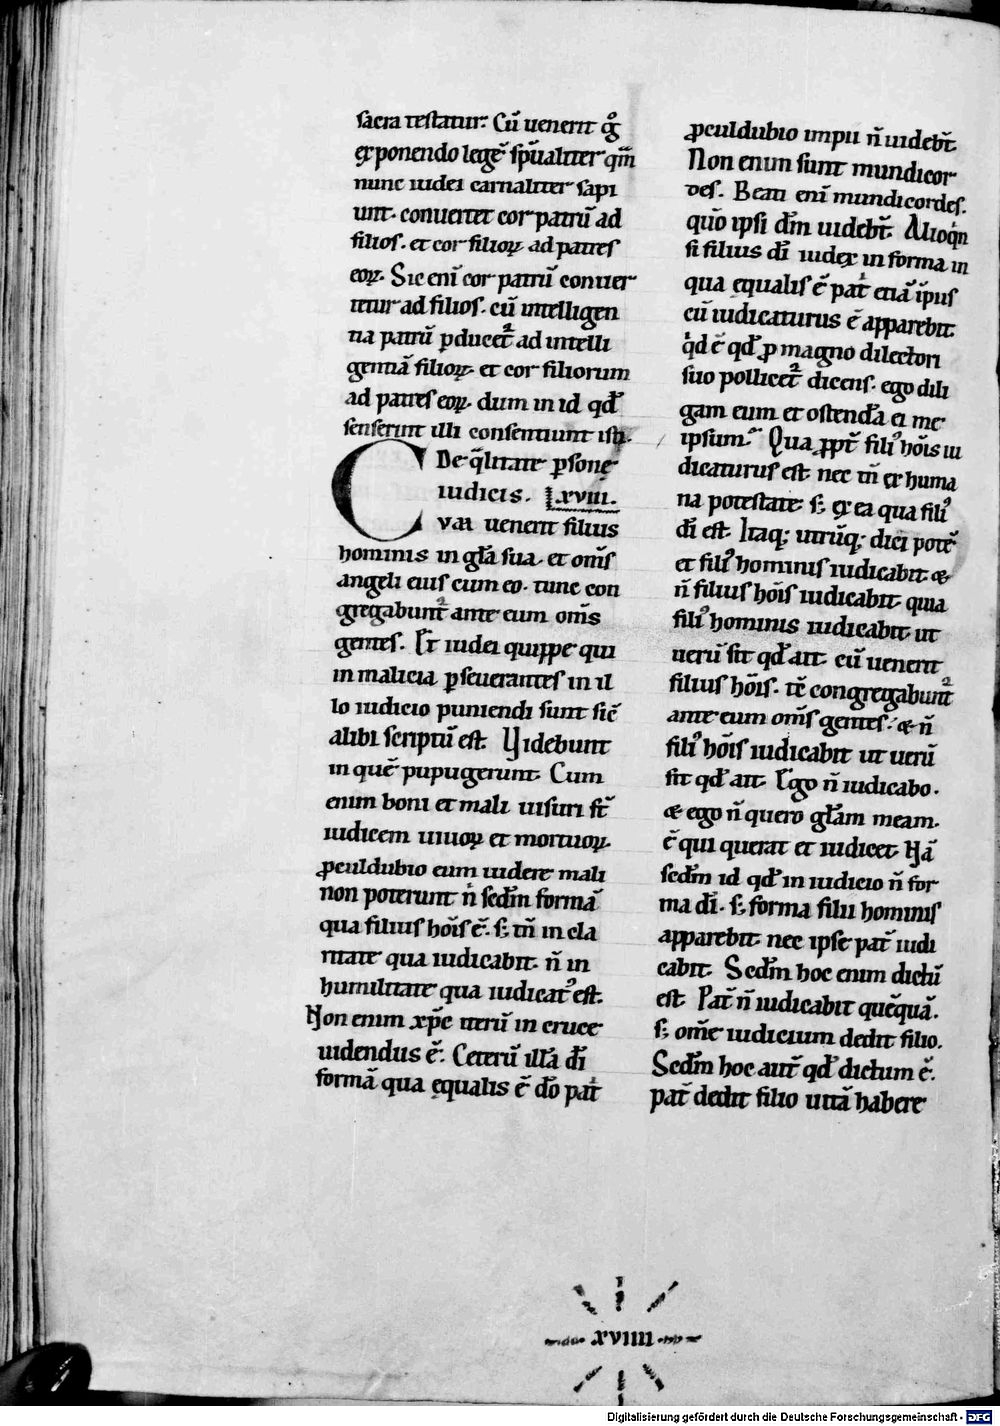 sacra testatur. Cū uenerit gͦ
exponendo legē sp̄ualiter qm̄
nunc iudei carnaliter sapi
unt. conuertet cor patrū ad
filios. et cor filioꝝ ad patres
eoꝝ. Sic eni cor patrū conuer
titur ad filios. cū intelligen
tia patrū ꝑducet᷑ ad intelli
gentiā filioꝝ. et cor filiorum
ad patres eoꝝ. dum in id qd̄
senserunt illi consentiunt isti.
De q̄litate ꝑsone
iudicis. Lxviii.
Cvm uenerit filius
hominis in gl̄a sua. et om̄s
angeli eius cum eo. tunc con
gregabunt᷑ ante eum om̄s
gentes. Et iudei quippe qui
in malicia ꝑseuerantes in il
lo iudicio puniendi sunt sic̄
alibi scriptū est. Videbunt
in quē pupugerunt. Cum
enim boni et mali uisuri st̄
iudicem uiuoꝝ et mortuoꝝ.
ꝓculdubio eum uidere mali
non poterunt nͥ sedm̄ formā
qua filius hoīs ē. s; tn̄ in cla
ritate qua iudicabit. n̄ in
humilitate qua iudicatꝰ est.
Non enim xp̄c iterū in cruce
uidendus ē. Ceterū illā dī
formā qua ęqualis ē dō patͥ
ꝓculdubio impii n̄ uidebt̄.
Non enim sunt mundicor
des. Beati enī mundicordes.
quō ipsi dm̄ uidebt̄. Alioqͥn
si filius dī iudex in forma in
qua ęqualis ē patͥ etiā ip̄ius
cū iudicaturus ē apparebit.
qͥd ē qd̄ ꝓ magno dilectori
suo pollicet᷑ dicens. ego dili
gam eum et ostendā ei me
ipsum. Qua ꝓpt̄ filiꝰ hoīs iu
dicaturus est. nec tn̄ ex huma
na potestate. s; ex ea qua filiꝰ
dī est. Itaq; utrūq; dici potē
et filiꝰ hominis iudicabit. &
n̄ filius hoīs iudicabit. quia
filiꝰ hominis iudicabit. ut
uerū sit qd̄ ait. cū uenerit
filius hoīs. tē congregabunt᷑
ante eum om̄s gentes. & n̄
filiꝰ hoīs iudicabit ut uerū
sit qd̄ ait. Ego n̄ iudicabo.
& ego n̄ quero gl̄am meam.
ē qui querat et iudicet. Nā
sedm̄ id qd̄ in iudicio n̄ for
ma dī. s; forma filii hominis
apparebit. nec ipse pat̄ iudi
cabit. Sedm̄ hoc enim dictū
est. Pat̄ n̄ iudicabit quēquā.
s; om̄e iudicium dedit filio.
Sedm̄ hoc aut̄ qd̄ dictum ē.
pat̄ dedit filio uitā habere
xviiii
Digitalisierung gefördert durch die Deutsche Forschungsgemeinschaft - DFG